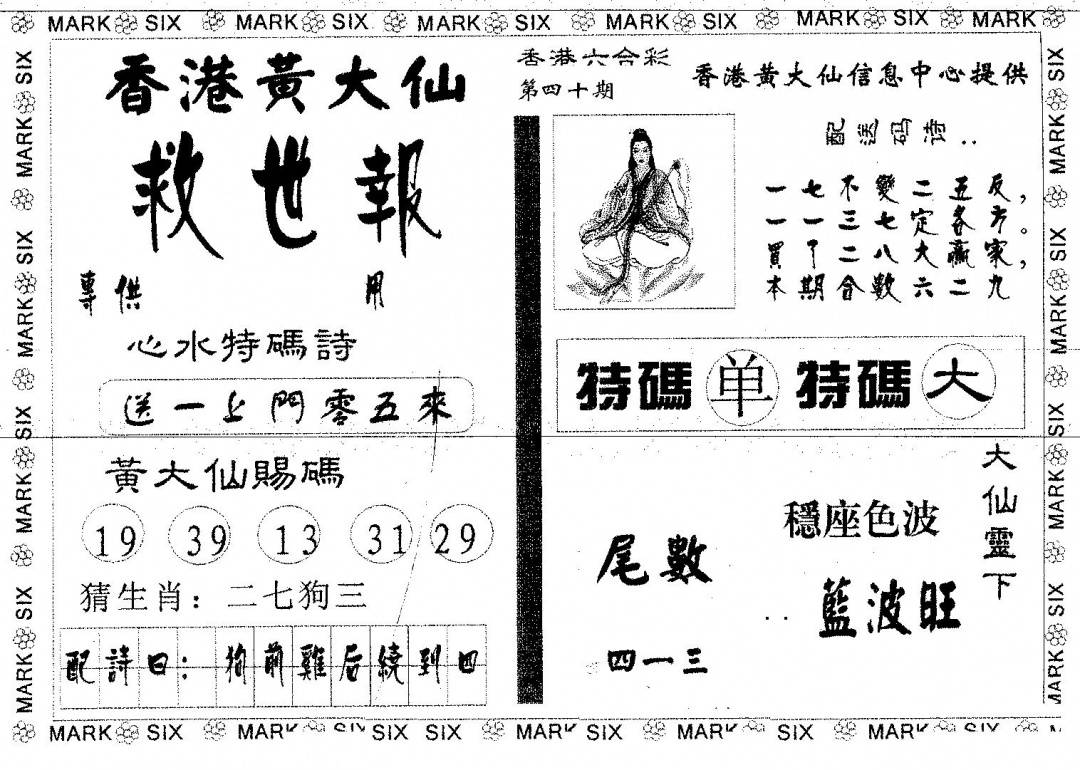 MARK SIX MARK SIX MARK SIX MARK SIX MARK SIX MARK
香港黃大仙
救世報
專供 用
心水特碼詩
送一上門零五來
黃大仙賜碼
19 39 13 31 29
猜生肖：二七狗三
配詩曰：狗前雞后繞到四
香港六合彩
第四十期
香港黃大仙信息中心提供
配送码诗..
一七不變二五反，
一一三七定各方。
買了二八大贏家，
本期合數六二九
特碼 单 特碼 大
大仙靈下
穩座色波
藍波旺
尾數
四一三
MARK SIX MARK SIX SIX MARK SIX MARK SIX MARK SIX
MARK SIX MARK SIX MARK SIX MARK SIX
MARK SIX MARK SIX MARK SIX MARK SIX